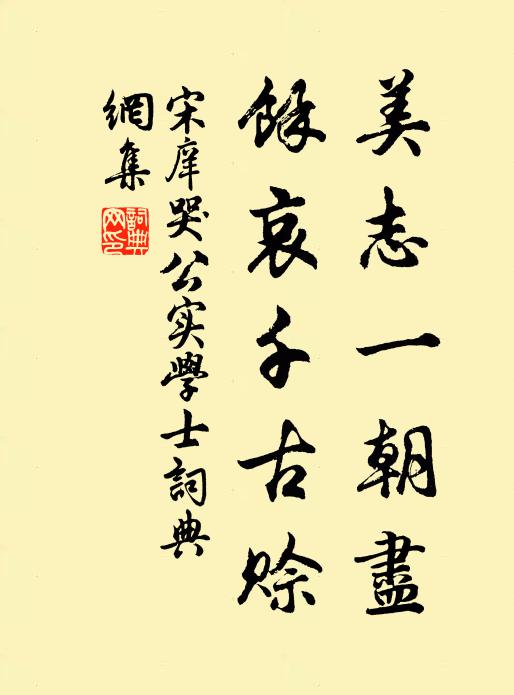 美志一朝盡
餘哀千古賒
宋庠哭公实學士詞典
網集
詞典網印